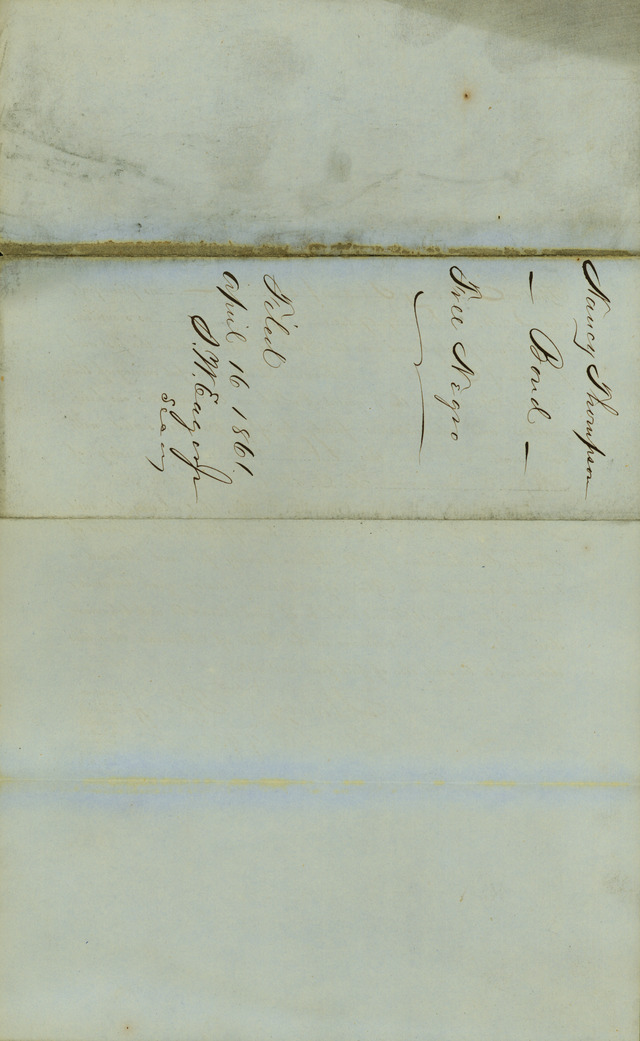 Nancy Thompson
— Bond —
Free Negro
Filed
April 16 1861.
S. W. Eager Jr